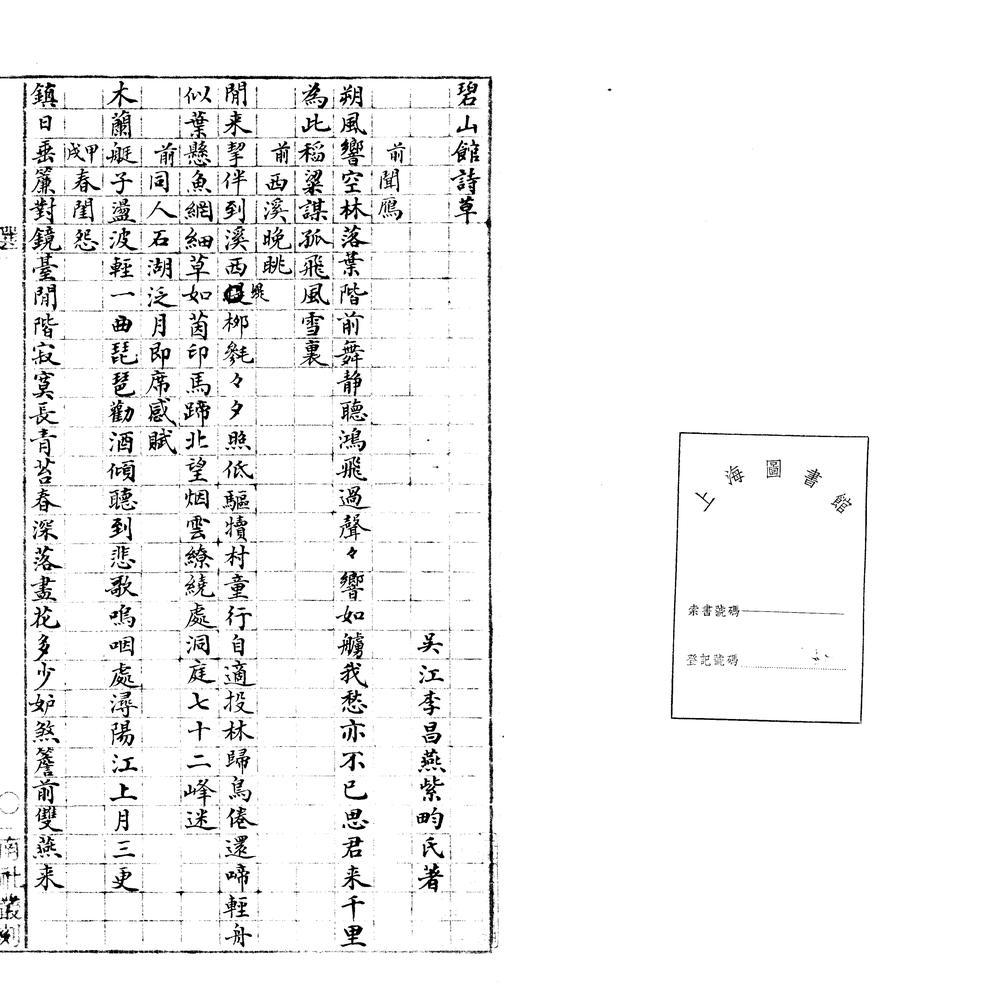 上海圖書館
索書號碼
登記號碼
碧山館詩草
吳江李昌燕紫畇氏著
前聞鴈
朔風響空林落葉階前舞静聽鴻飛過聲々響如艣我愁亦不已思君来千里
為此稻粱謀孤飛風雪裏
前西溪晚眺
閒来挈伴到溪西堤柳毿々夕照低驅犢村童行自適投林歸鳥倦還啼輕舟
似葉懸魚網細草如茵印馬蹄北望烟雲繚繞處洞庭七十二峰迷
前同人石湖泛月即席感賦
木蘭艇子盪波輕一曲琵琶勸酒傾聽到悲歌嗚咽處潯陽江上月三更
甲戌春閨怨
鎮日垂簾對鏡臺閒階寂寞長青苔春深落盡花多少妒煞簷前雙燕来
南社叢刻